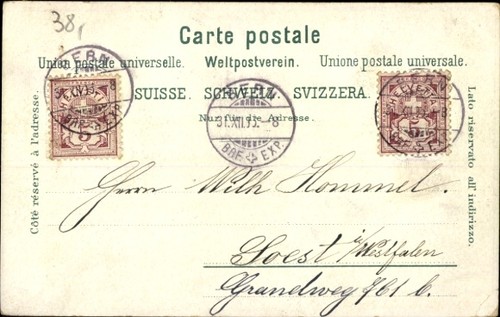 38,
Carte postale
Union postale universelle. Weltpostverein. Unione postale universale.
SUISSE. SCHWEIZ. SVIZZERA.
Nur für die Adresse.
Côté réservé à l'adresse.
Lato riservato all' indirizzo.
BERN
31.XII.99. 8
BRF. EXP.
Herrn Wilh Hommel.
Soest i/Westfalen
Grandweg 761 b.